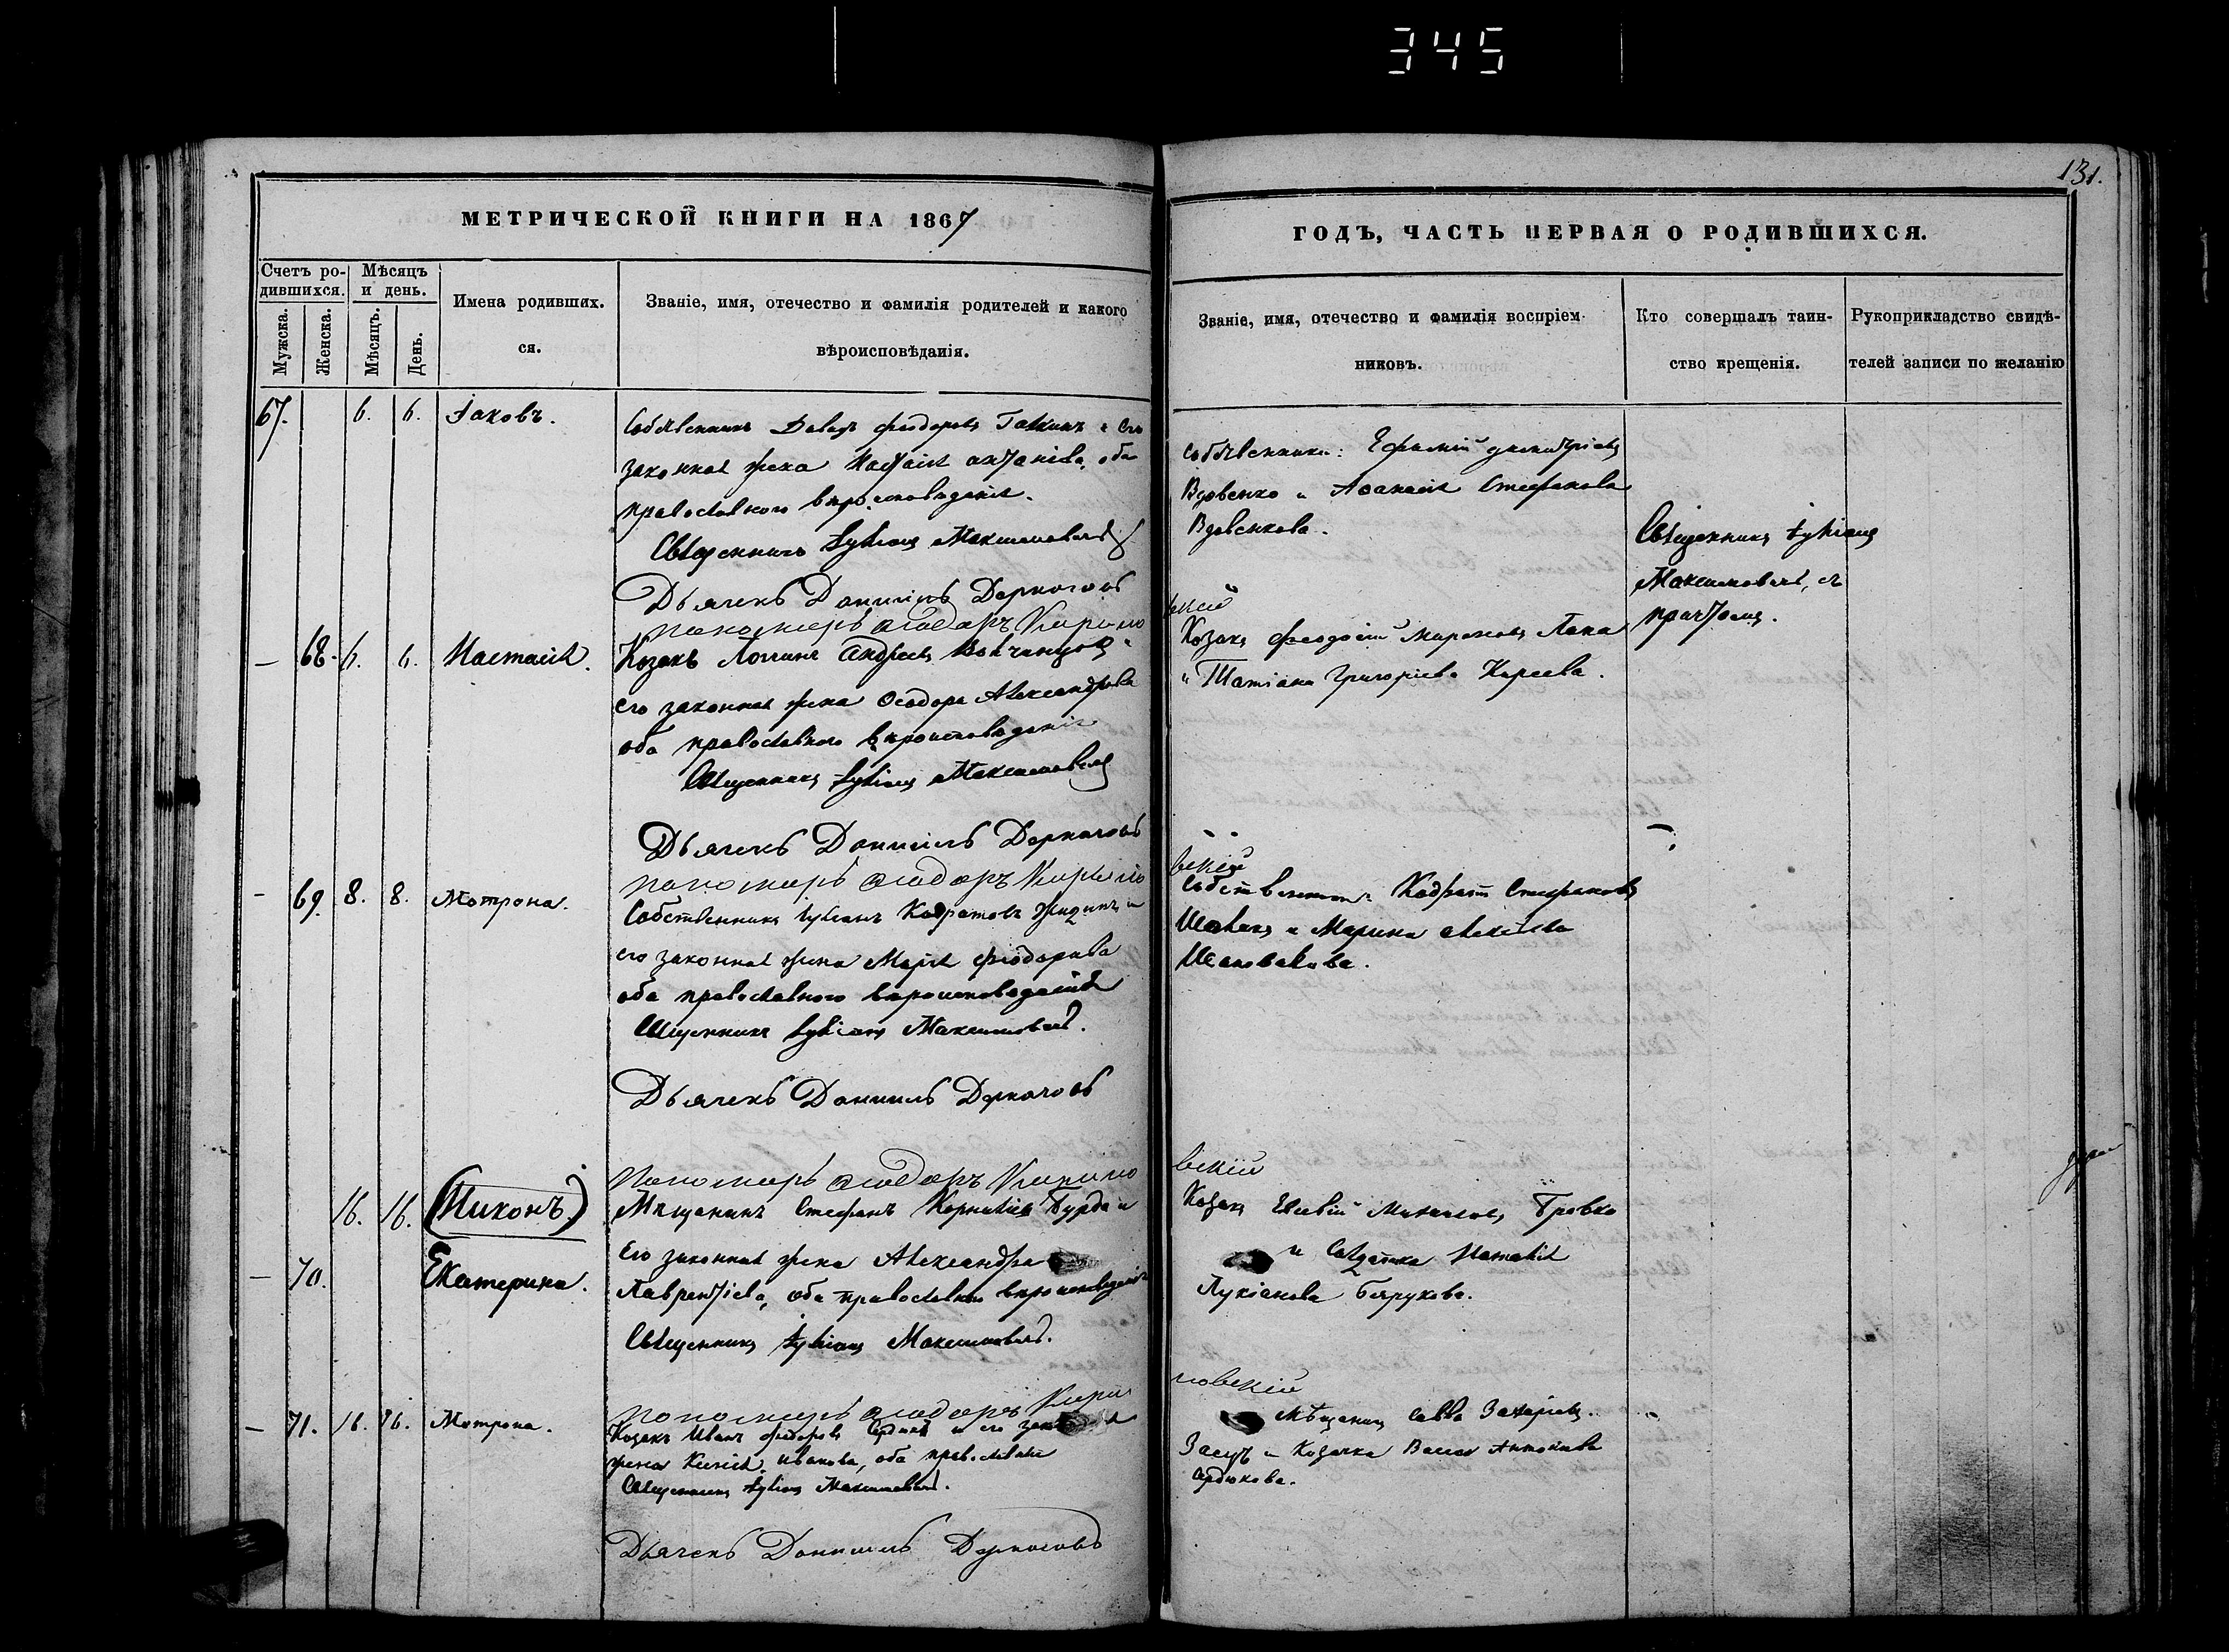 345
131.
МЕТРИЧЕСКОЙ КНИГИ НА 1867
ГОДЪ, ЧАСТЬ ПЕРВАЯ О РОДИВШИХСЯ.
Счетъ ро-
дившихся.
Мужска.
Женска.
Мѣсяцъ
и день.
Мѣсяцъ.
День.
Имена родивших.
ся.
Званіе, имя, отечество и фамилія родителей и какого
вѣроисповѣданія.
Званіе, имя, отечество и фамилія воспріем-
никовъ.
Кто совершалъ таин-
ство крещенія.
Рукоприкладство свидѣ-
телей записи по желанію
67. 6. 6. Іаковъ.
Собственникъ Давидъ Феодоровъ и его
законная жена Настасія оба
православного вѣроисповѣданія.
Священникъ Лукіанъ Максимовичъ
Дьячекъ Даніилъ Деркачовъ
пономарь Феодоръ Кирило
Собственники: Ефимій Димитріевъ
Вдовенко и Афанасія Стефанова
Вдовенкова.
Священникъ Лукіанъ
Максимовичъ, съ
причтомъ.
вскій
— 68. 6. 6. Настасія.
Козакъ Логинъ Андреевъ и
его законная жена Феодора Александрова
оба православного вѣроисповѣданія
Священникъ Лукіанъ Максимовичъ
Дьячекъ Даніилъ Деркачовъ
пономарь Феодоръ Кирило
Козакъ Феодосій Мироновъ
и Татіана Григоріева Киреева.
вскій
— 69. 8. 8. Мотрона.
Собственникъ Лукіанъ Кодратовъ и
его законная жена Марія Феодорова
оба православного вѣроисповѣданія
Священникъ Лукіанъ Максимовичъ.
Дьячекъ Даніилъ Деркачовъ
пономарь Феодоръ Кирило
Собственники Кодратъ Стефановъ
и Марина Алексѣева
Шаповалова.
вскій
16. 16. (Никонъ.)
— 70. Екатерина.
Мѣщанинъ Стефанъ Корнилiевъ Бурда и
его законная жена Александра
Лаврентіева, оба православного вѣроисповѣданія
Священникъ Лукіанъ Максимовичъ.
пономарь Феодоръ Кири
Козакъ Евсевій Михаиловъ Бровко
и Наталія
Лукіанова Бирукова.
ловскій
— 71. 16. 16. Мотрона.
Козакъ Иванъ Феодоровъ и его
жена Ксенія Иванова, оба православные
Священникъ Лукіанъ Максимовичъ.
Дьячекъ Даніилъ Деркачовъ
Мѣщанинъ Савва Захаріевъ
Заецъ и Козачка Васса Антонiева
Сердюкова.